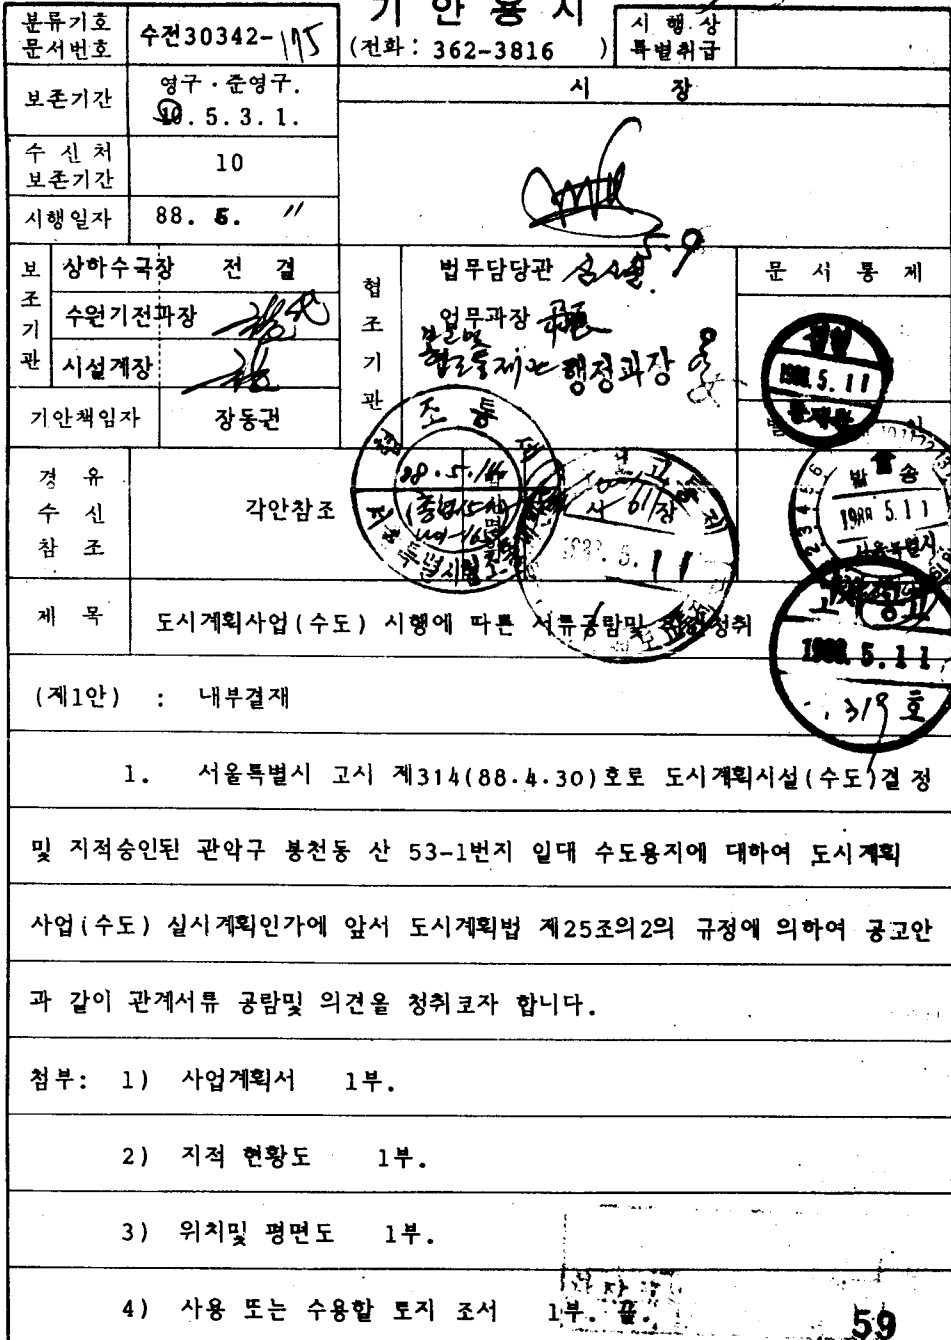 기 안 용 지
분류기호
문서번호
수전30342-175
(전화: 362-3816 )
시 행 상
특별취급
보존기간
영구·준영구.
10.5.3.1.
시 장
수 신 처
보존기간
10
시행일자
88. 5. 11
5.9
보조기관
상하수국장 전 결
수원기전과장
시설계장
기안책임자
장동권
협조기관
법무담당관
업무과장
행정과장
문 서 통 제
1988.5.11
경 유
수 신
참 조
각안참조
88.5.
1988.5.11
발 송
1988 5.11
서울특별시
제 목
도시계획사업(수도) 시행에 따른 서류공람및 의견청취
1988.5.11
319 호
(제1안) : 내부결재
1. 서울특별시 고시 제314(88.4.30)호로 도시계획시설(수도)결정
및 지적승인된 관악구 봉천동 산 53-1번지 일대 수도용지에 대하여 도시계획
사업(수도) 실시계획인가에 앞서 도시계획법 제25조의2의 규정에 의하여 공고안
과 같이 관계서류 공람및 의견을 청취코자 합니다.
첨부: 1) 사업계획서 1부.
2) 지적 현황도 1부.
3) 위치및 평면도 1부.
4) 사용 또는 수용할 토지 조서 1부. 끝.
59